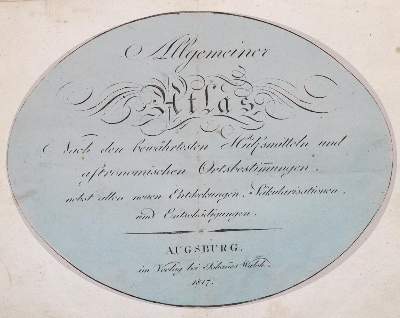 Allgemeiner
Atlas
Nach den bewährtesten Hülfsmitteln und
astronomischen Ortsbestimmungen,
nebst allen neuen Entdeckungen, Säkularisationen,
und Entschädigungen.
AUGSBURG,
im Verlag bei Johannes Walch.
1817.